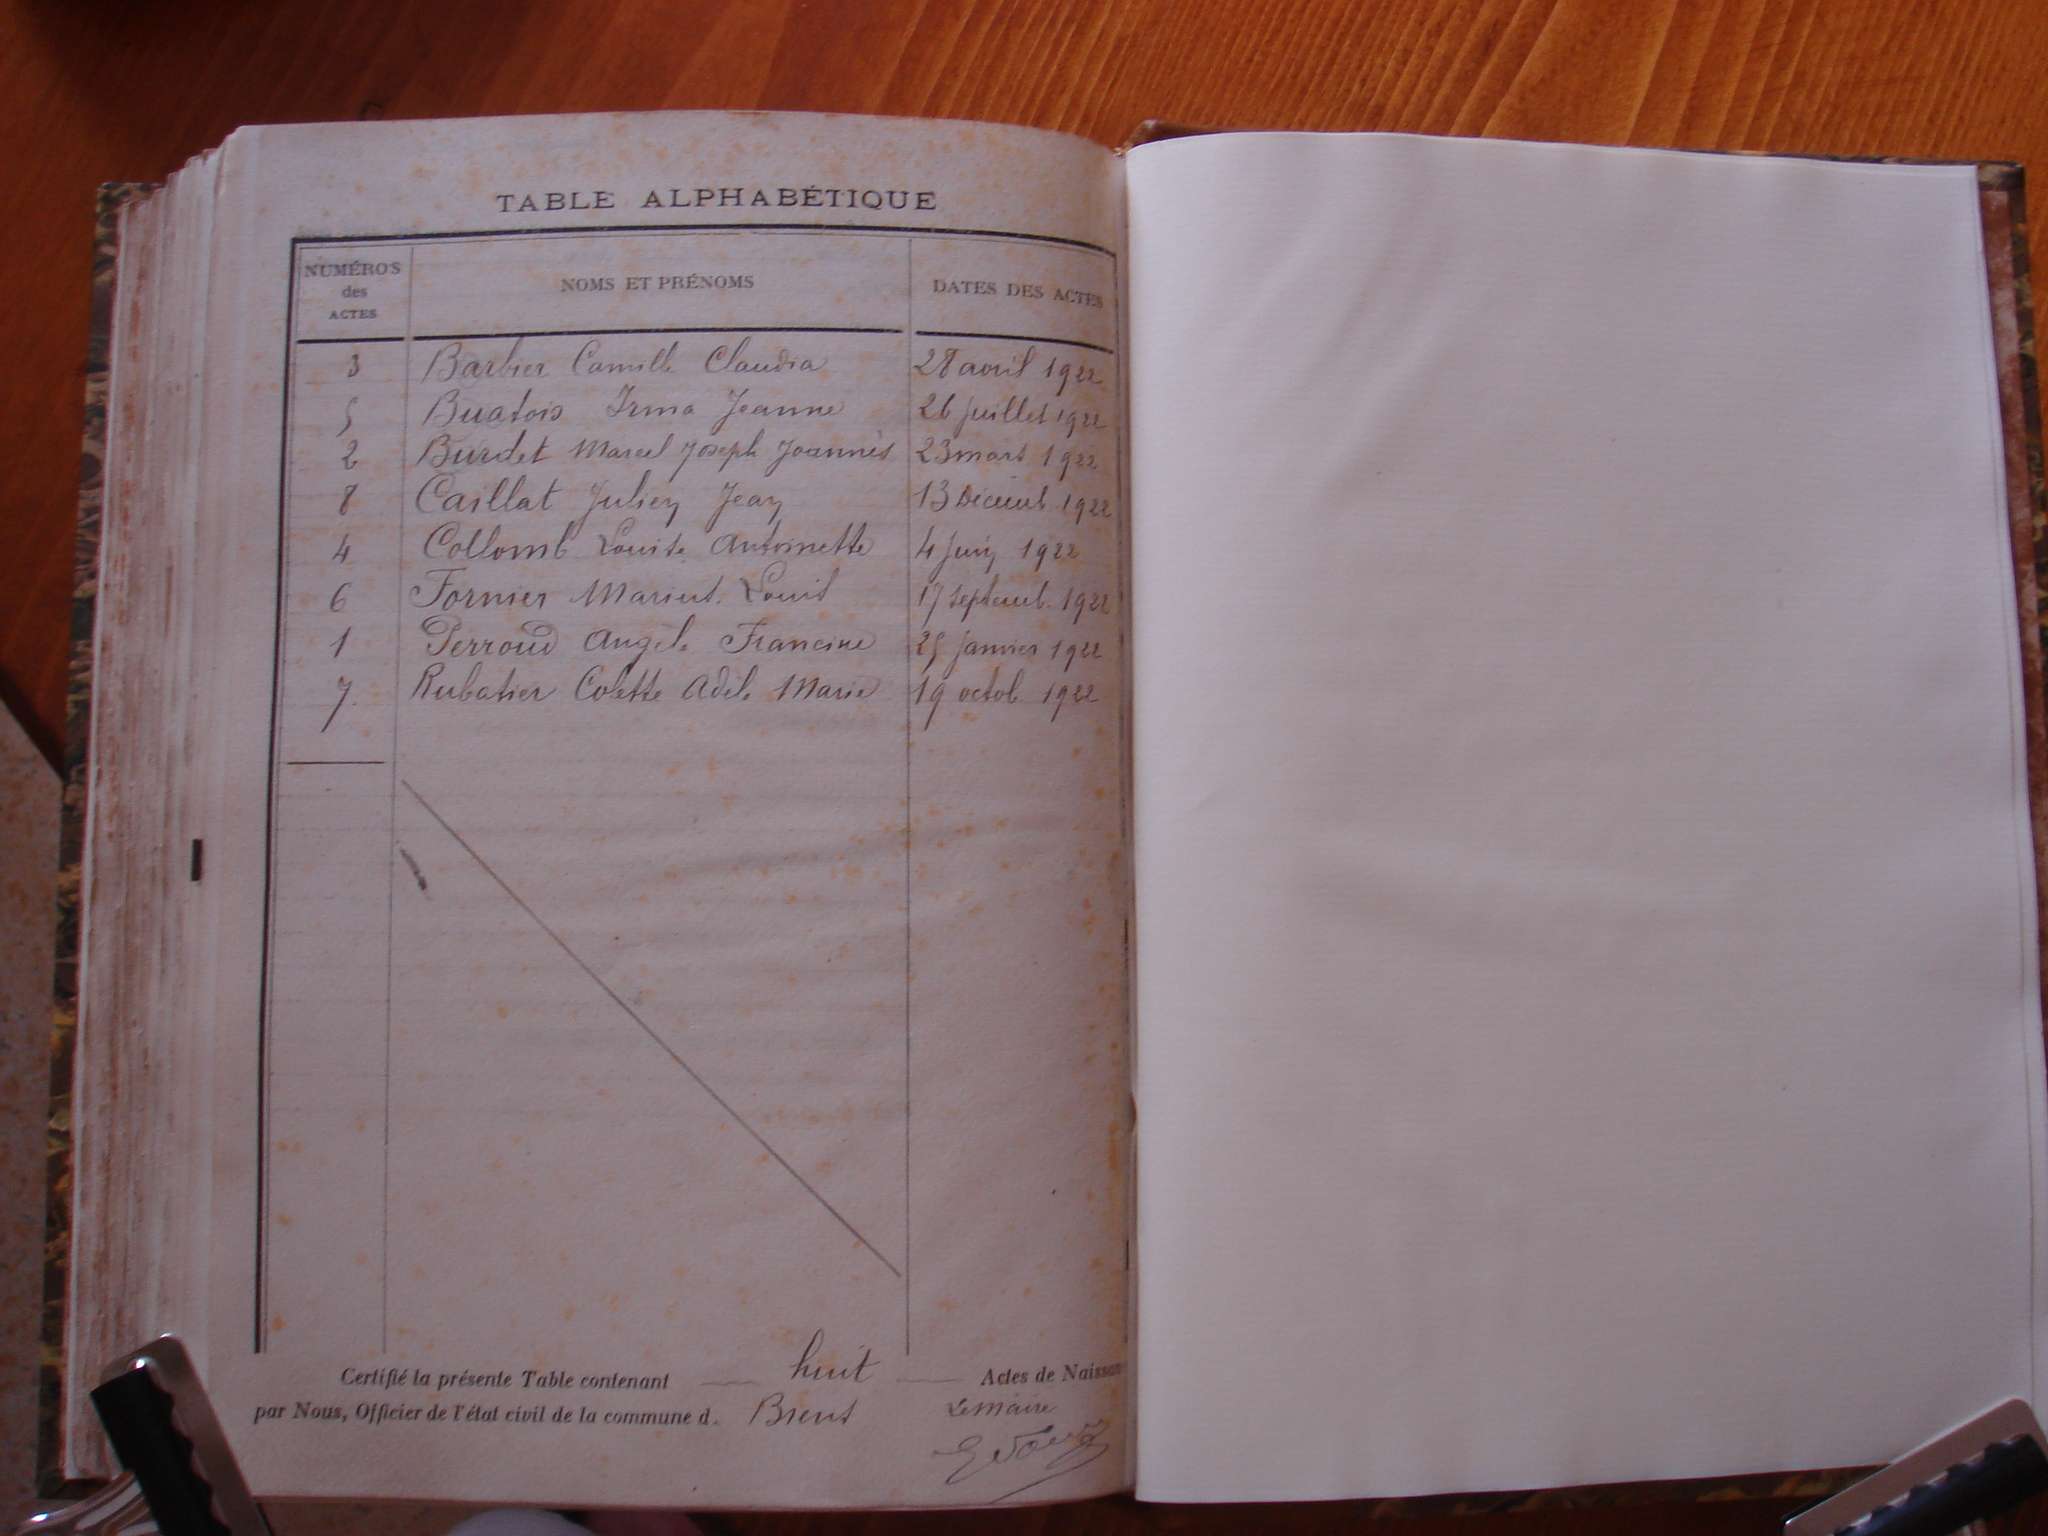 TABLE ALPHABÉTIQUE
NUMÉROS des ACTES NOMS ET PRÉNOMS DATES DES ACTES
3 Barbier Camille Claudia 28 avril 1922
5 Buatois Irma Jeanne 26 juillet 1922
2 Burdet Marcel Joseph Joannès 23 mars 1922
8 Caillat Julien Jean 13 Décemb 1922
4 Collomb Louise Antoinette 4 juin 1922
6 Fornier Marius Louis 17 septemb. 1922
1 Perroud Angèle Francine 25 janvier 1922
7. Rubatier Colette Adèle Marie 19 octob. 1922
Certifié la présente Table contenant huit Actes de Naissan
par Nous, Officier de l'état civil de la commune d. Brens
Le Maire